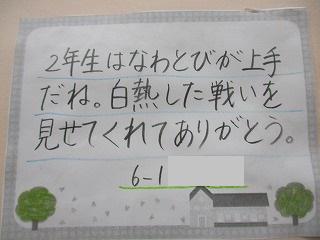 2年生はなわとびが上手
だね。白熱した戦いを
見せてくれてありがとう。
6-1